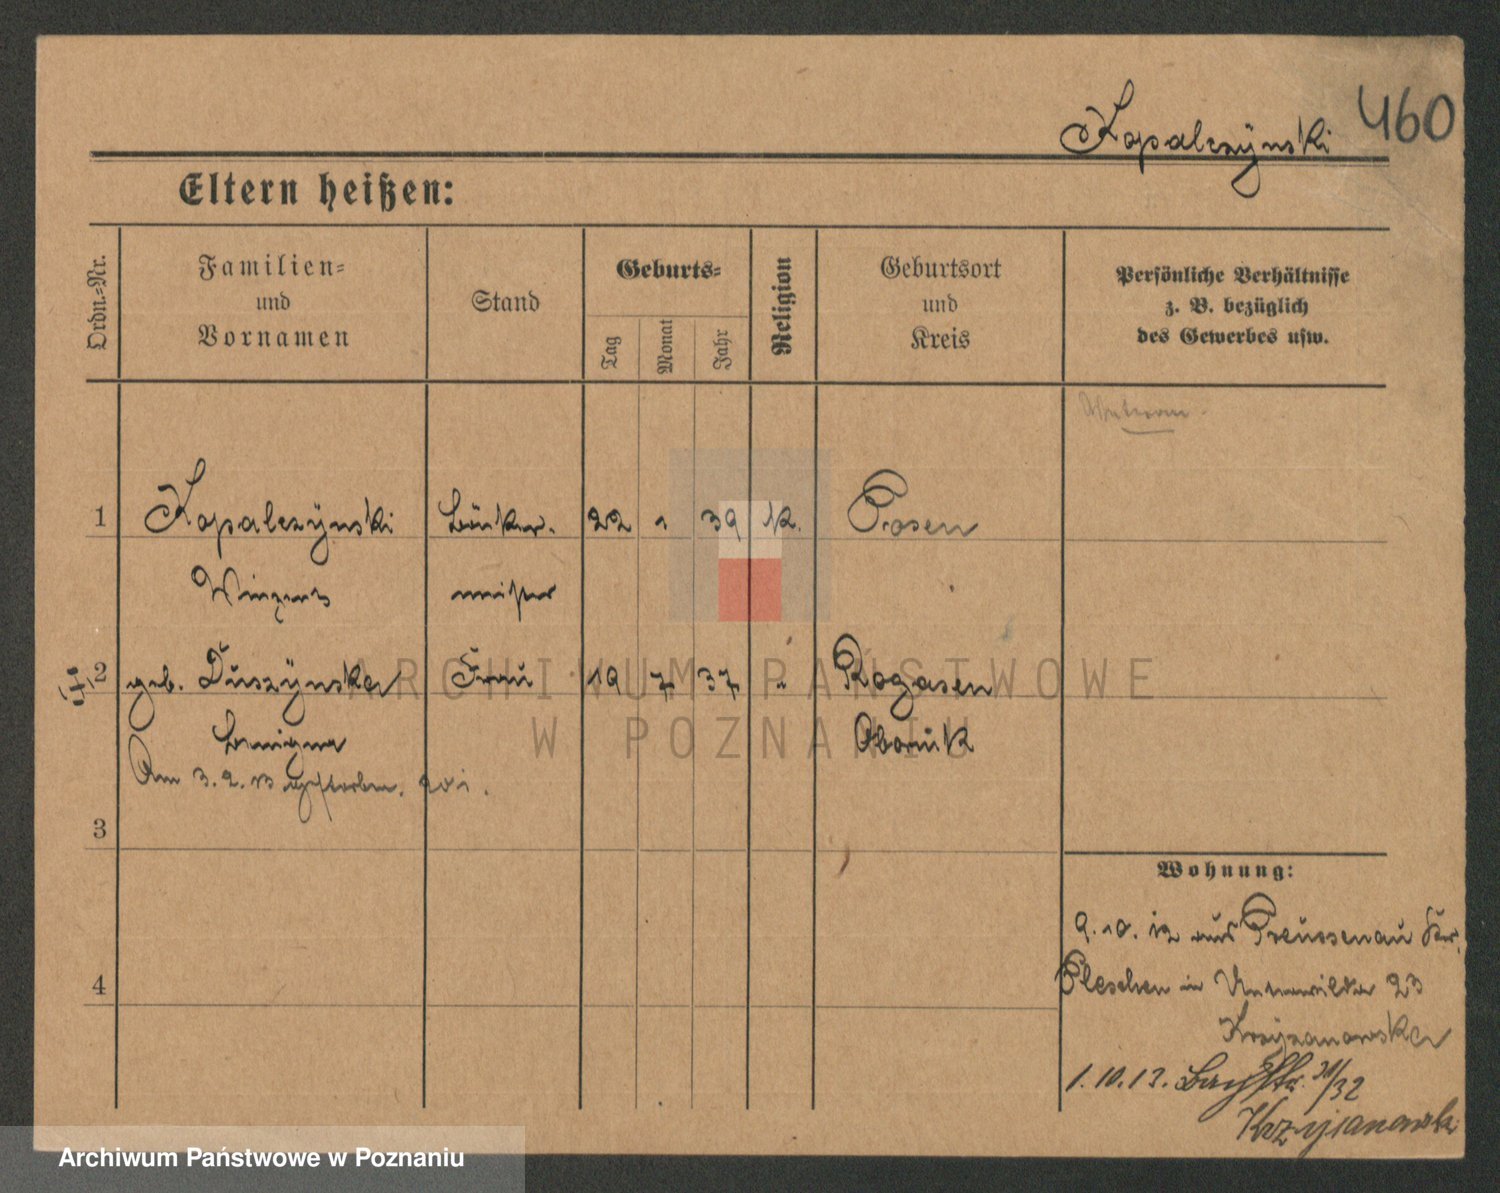 460
Kopalczÿnski
Eltern heißen:
Ordn.=Nr.
Familien=
und
Vornamen
Stand
Geburts=
Tag
Monat
Jahr
Religion
Geburtsort
und
Kreis
Persönliche Verhältnisse
z. B. bezüglich
des Gewerbes usw.
1 Kopalczÿnski Bäcker- 22 1 39 k. Posen
Winzent meister
2 geb. Duszÿnska Frau 19 7 37 " Rogasen
Benigna Obornik
Am 3. 2. 13 gestorben.
3
4
Wohnung:
9. 10. 12 aus Preussenau Kr.
Pleschen in Unterwilda 23
Krzyzanowska
1. 10. 13. 31/32
Krzyżanowski
ARCHIWUM PAŃSTWOWE
W POZNANIU
Archiwum Państwowe w Poznaniu